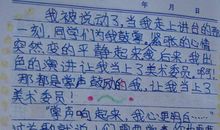 年 月 日
我被说动了,当我走上讲台的那
一刻,同学们为我鼓掌,紧张的心情
突然变的平静起来。后来,我出
色的演讲让我当上了美术委员。啊!
那都是掌声鼓励的我,让我当上了
美术委员!
掌声响起来,我心更明白……